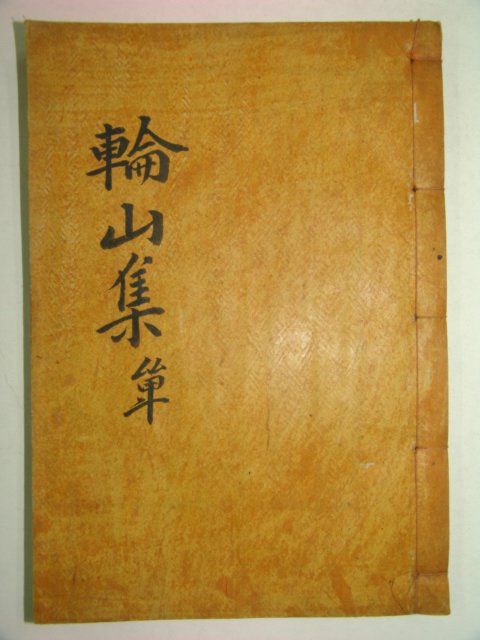 輪山集單